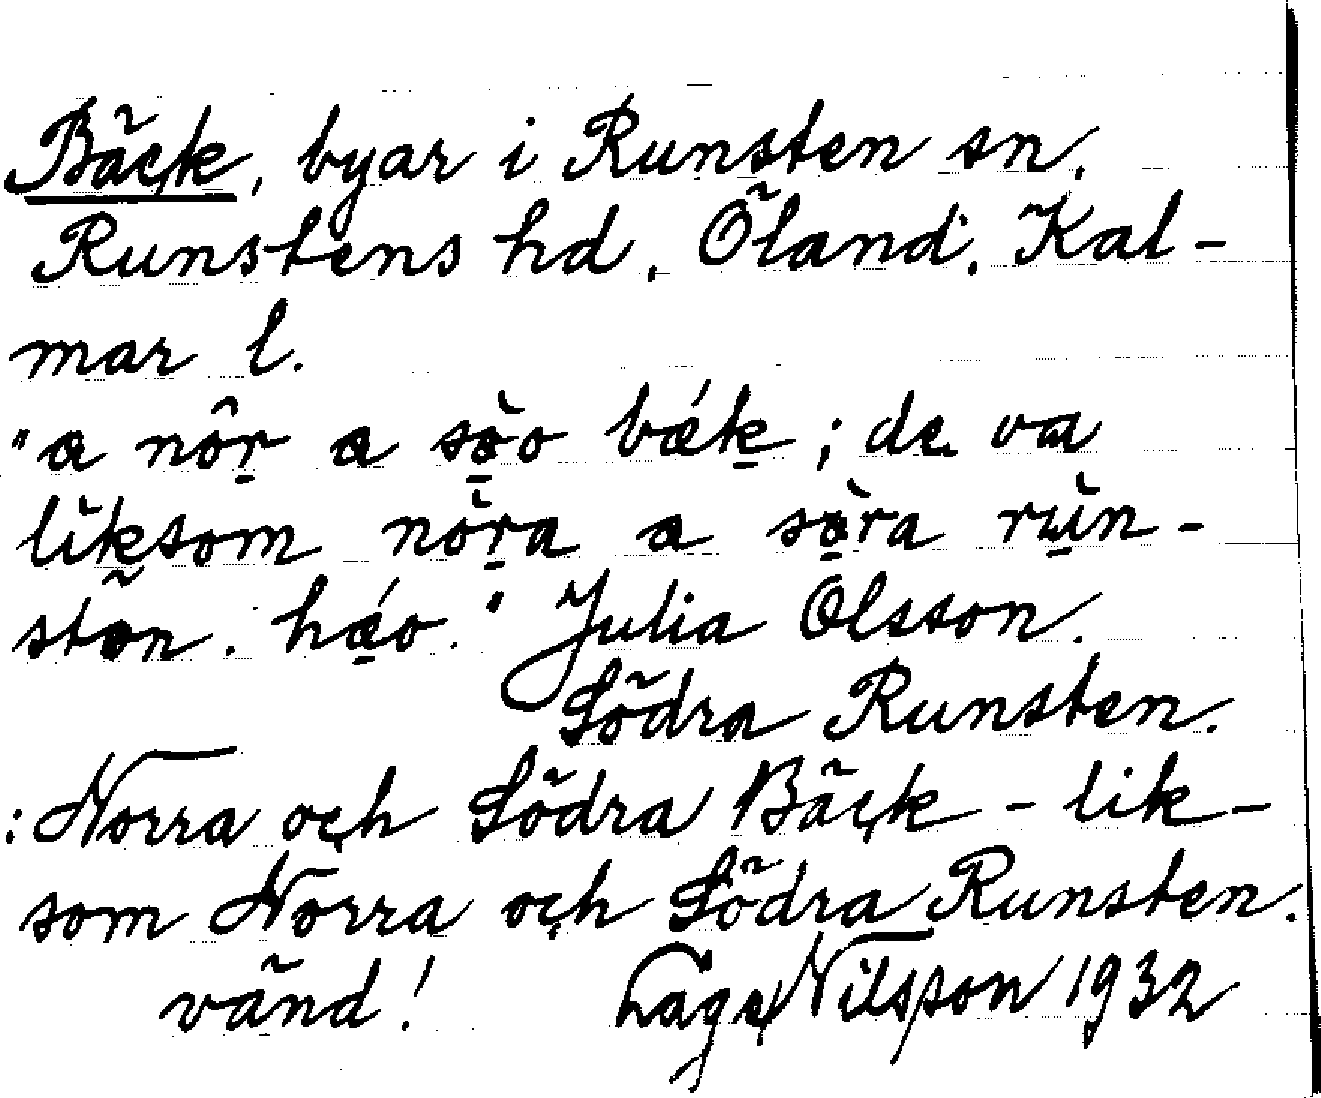 Bäck, byar i Runsten sn.
Runstens hd, Öland. Kal-
mar l.
"a nôr a sò̱o bǽk; de va
lìksom nòra a sò̱ra rùn-
stõn. hǽo." Julia Olsson.
Södra Runsten.
:Norra och Södra Bäck - lik-
som Norra och Södra Runsten.
vänd! Lage Nilsson 1932